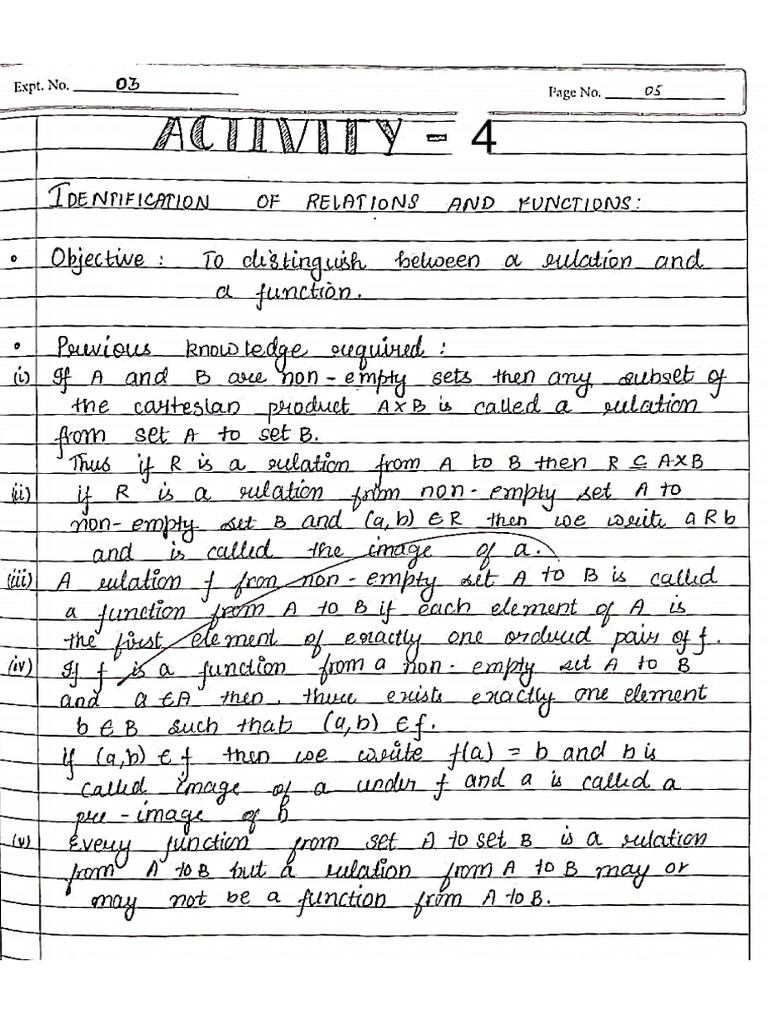 Expt. No. 03
Page No. 05
ACTIVITY - 4
IDENTIFICATION OF RELATIONS AND FUNCTIONS:
• Objective : To distinguish between a relation and
a function.
• Previous knowledge required :
(i) If A and B are non-empty sets then any subset of
the cartesian product A×B is called a relation
from set A to set B.
Thus if R is a relation from A to B then R ⊆ A×B
(ii) if R is a relation from non-empty set A to
non-empty set B and (a,b) ∈R then we write a R b
and is called the image of a.
(iii) A relation f from non-empty set A to B is called
a function from A to B if each element of A is
the first element of exactly one ordered pair of f.
(iv) If f is a function from a non-empty set A to B
and a ∈A then, there exists exactly one element
b ∈ B such that (a,b) ∈ f.
if (a,b) ∈ f then we write f(a) = b and b is
called image of a under f and a is called a
pre-image of b
(v) Every function from set A to set B is a relation
from A to B but a relation from A to B may or
may not be a function from A to B.